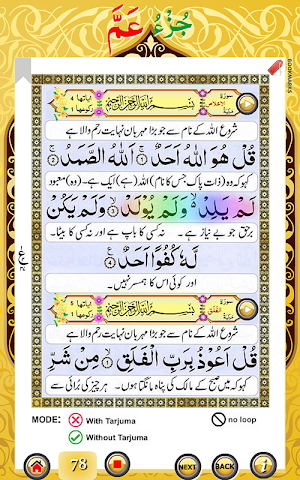 جُزْءُ عَمَّ
BOOKMARKS
سورة الإخلاص مكية بِسْمِ اللهِ الرَّحْمٰنِ الرَّحِيْمِ اٰیاتها 4 رکوعها 1
شروع اللہ کے نام سے جو بڑا مہربان نہایت رحم والا ہے
قُلْ هُوَ اللّٰهُ اَحَدٌ ۚ ﴿۱﴾ اَللّٰهُ الصَّمَدُ ۚ ﴿۲﴾
کہو کہ وہ (ذات پاک جس کا نام) اللہ (ہے) ایک ہے۔ (وہ) معبود
لَمْ یَلِدْ ۙ۬ وَ لَمْ یُوْلَدْ ۙ ﴿۳﴾ وَ لَمْ یَكُنْ
برحق جو بے نیاز ہے۔ نہ کسی کا باپ ہے اور نہ کسی کا بیٹا۔
لَّهٗ كُفُوًا اَحَدٌ ﴿۴﴾
اور کوئی اس کا ہمسر نہیں۔
سورة الفلق مكية بِسْمِ اللهِ الرَّحْمٰنِ الرَّحِيْمِ اٰیاتها 5 رکوعها 1
شروع اللہ کے نام سے جو بڑا مہربان نہایت رحم والا ہے
قُلْ اَعُوْذُ بِرَبِّ الْفَلَقِ ۙ ﴿۱﴾ مِنْ شَرِّ
کہو کہ میں صبح کے مالک کی پناہ مانگتا ہوں۔ ہر چیز کی برائی سے
MODE: With Tarjuma no loop
Without Tarjuma
78 NEXT BACK i